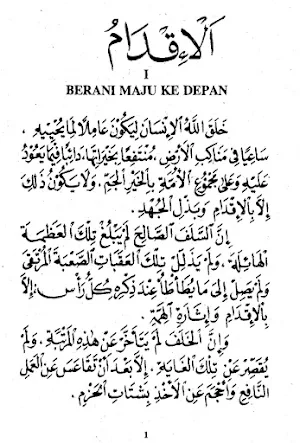 اَلْإِقْدَامُ
I
BERANI MAJU KE DEPAN
خَلَقَ اللّٰهُ الْإِنْسَانَ لِيَكُوْنَ عَامِلًا لِمَا يُحْيِيْهِ.
سَاعِيًا فِيْ مَنَاكِبِ الْأَرْضِ، مُنْتَفِعًا بِخَيْرَاتِهَا، دَائِبًا فِيْمَا يَعُوْدُ
عَلَيْهِ وَعَلَى مَجْمُوْعِ الْأُمَّةِ بِالْخَيْرِ الْجَمِّ. وَلَا يَكُوْنُ ذٰلِكَ
إِلَّا بِالْإِقْدَامِ وَبَذْلِ الْجُهْدِ.
إِنَّ السَّلَفَ الصَّالِحَ لَمْ يَبْلُغْ تِلْكَ الْعَظَمَةَ
الْهَائِلَةَ. وَلَمْ يُذَلِّلْ تِلْكَ الْعَقَبَاتِ الصَّعْبَةَ الْمُرْتَقَى
وَلَمْ يَصِلْ إِلَى مَا يُطَأْطَأُ عِنْدَ ذِكْرِهِ كُلُّ رَأْسٍ، إِلَّا
بِالْإِقْدَامِ وَإِثَارَةِ الْهِمَّةِ.
وَإِنَّ الْخَلَفَ لَمْ يَتَأَخَّرْ عَنْ هٰذِهِ الْمَرْتَبَةِ. وَلَمْ
يُقَصِّرْ عَنْ تِلْكَ الْغَايَةِ. إِلَّا بَعْدَ أَنْ تَقَاعَسَ عَنِ الْعَمَلِ
النَّافِعِ وَأَحْجَمَ عَنِ الْأَخْذِ بِشَتَاتِ الْحَزْمِ.
1